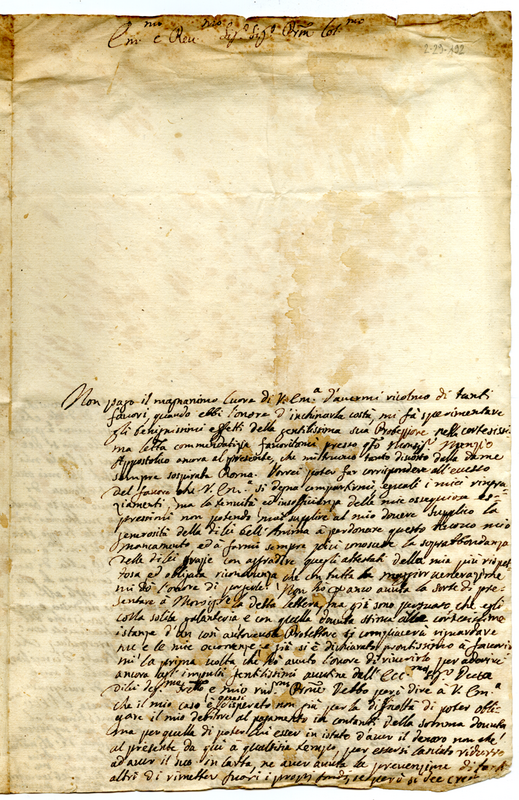 Em.mo e Rev.mo Sig.r Sig.r P̃rñ Col.mo
2-29-192
Non pago il magnanimo Cuore di V. Em.a d'avermi ricolmo di tanti
favori, quando ebbi l'onore d'inchinarla costà, mi fà sperimentare
gli benignissimi effetti della gentilissima sua Protezione nella cortesissi-
ma letta commendatizia favoritami presso Monsig.r
Appostolico onora al presente, che mi truovo tanto distante dalla da me
sempre sospirata Roma. Vorrei poter far corrispondere all'eccesso
del favore che V. Em.a si degna compartirmi, eguali i miei ringra-
ziamenti, ma la tenuità ed insufficienza delle mie ossequiose es-
pressioni non potendo mai supplire al mio dovere, supplico la
generosità della di lei bell'Anima a perdonare questo
mancamento, ed à farmi sempre più conoscere la soprabbondanza
delle di lei grazie con aggradire quegli attestati della mia più rispet-
tosa ed obligata riconoscenza che con tutta la maggior venerazione
mi dò l'onore di Non ho avuto la sorte di pre-
sentare à Monsig.re la detta lettera, ma già sono persuaso che egli
colla solita galanteria e con quella dovuta stima alla
istanza d'un così autorevole Protettore si compiacerà riguardare
me e le mie occorenze e già si è dichiarato prontissimo a favorir
mi la prima volta che hò avuto l'onore di riverirlo per aderire
ancora agl'impulsi gentilissimi avutine dall'Ecc.mo Sig.r Duca
di lei e mio P̃rñe. Debbo però dire à V. Em.a
che il mio caso è quasi disperato non già per la dificoltà di poter obli-
gare il mio debitore al pagamento in contanti della somma dovuta
ma per quella di poter lui esser in istato d'aver il denaro non chè
al presente da quì a qualche tempo, per essersi lasciato ridurre
ad aver il suo in carta, ne aver avuta la prevenzione di
altri di rimetter fuori i proprj fondi, se però si dee